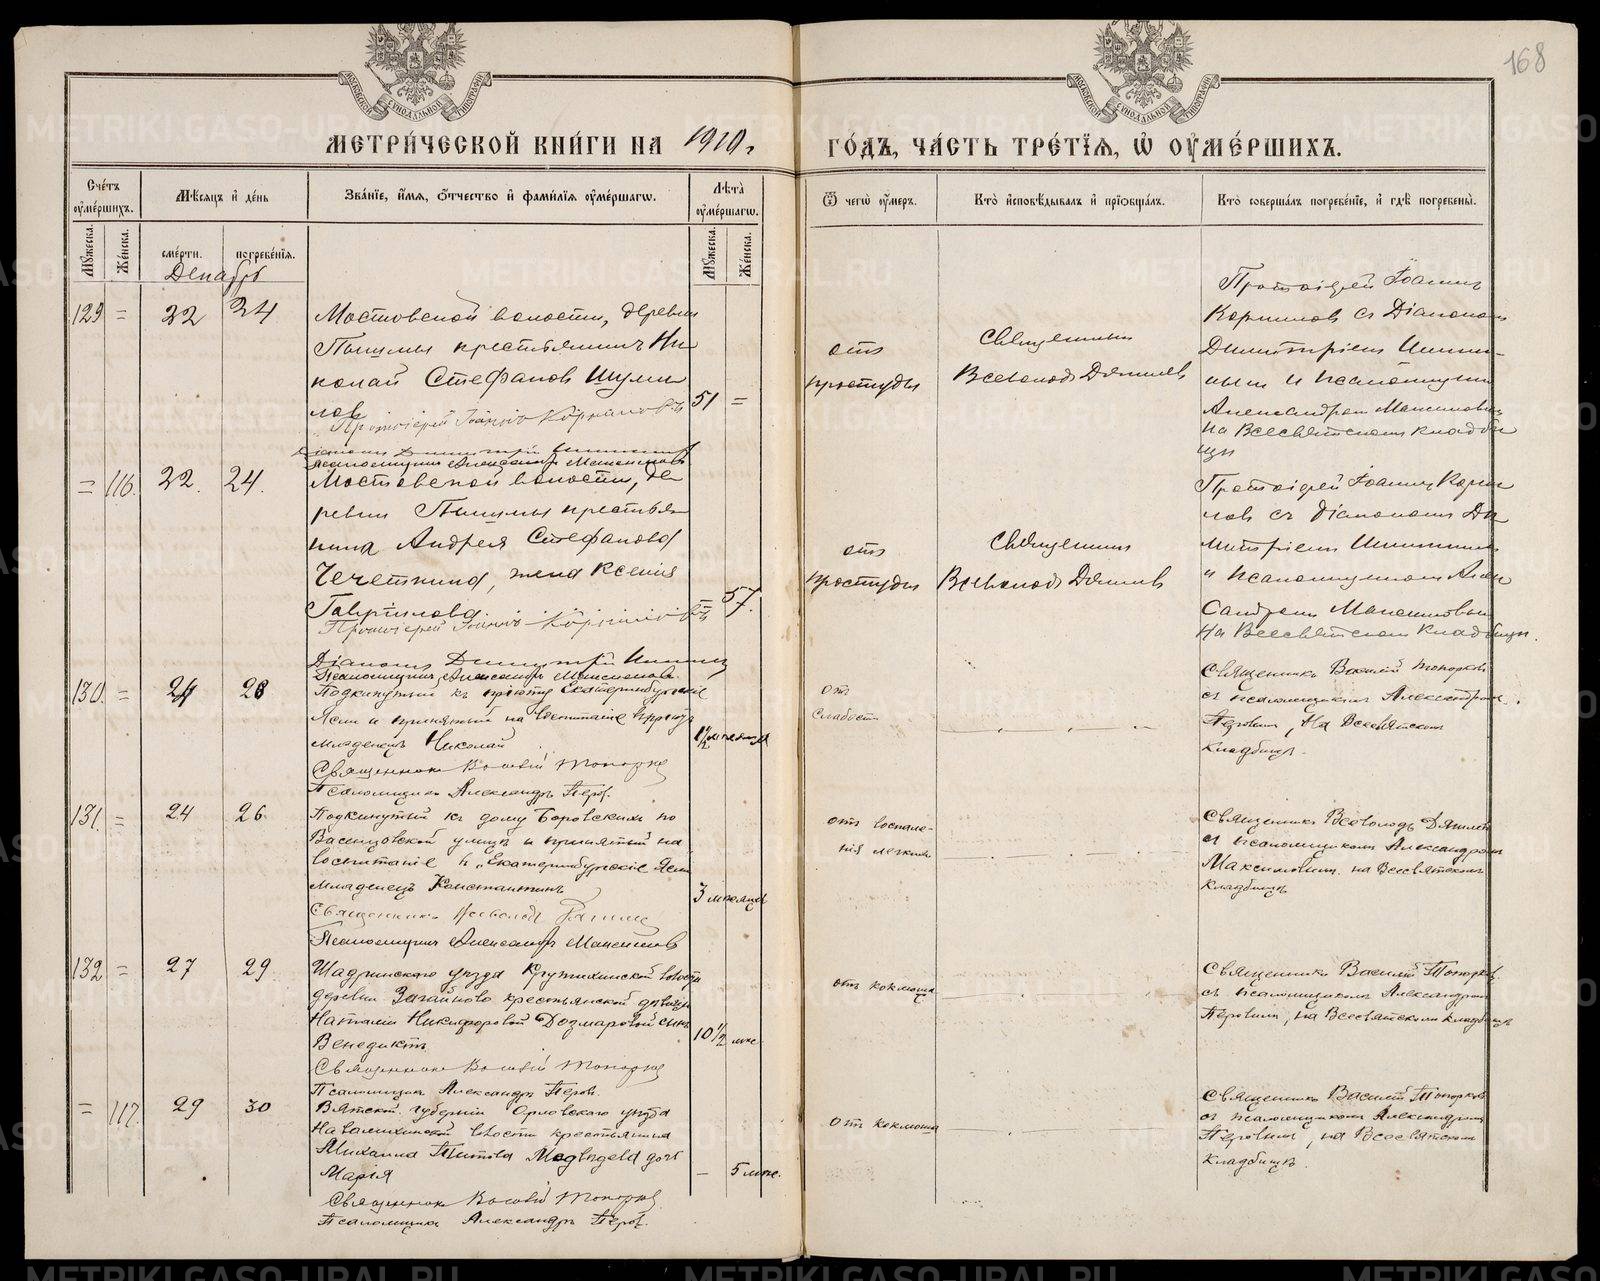 168
МЕТРИ́ЧЕСКОЙ КНИ́ГИ НА 1910 г.
ГО́ДЪ, ЧА́СТЬ ТРЕ́ТЇѦ, Ѡ ОУМЕ́РШИХЪ.
Сче́тъ оумершихъ.
Мѣсяцъ и҆ де́нь
Зва́нїе, и҆́мя, ѻ҆́тчество и҆ фами́лїя оумершагѡ.
Лѣта̀ оумершагѡ.
Ѿ чегѡ̀ оумеръ.
Кто̀ и҆сповѣ́дывалъ и҆ прїѡбща́лъ.
Кто̀ соверша́лъ погребе́нїе, и҆ гдѣ̀ погребены̀.
Мꙋ́жеска.
Же́нска.
сме́рти.
погребе́нїя.
Мꙋ́жеска.
Же́нска.
Декабрь
129 = 22 24
Мостовской волости, деревни
Пышмы крестьянинъ Ни-
колай Стефановъ Шуми-
ловъ
51 =
Протоіерей Іоаннъ Корниловъ
Діаконъ Димитрій
Псаломщикъ Александръ Максимовъ
отъ
простуды
Священникъ
Всеволодъ
Протоіерей Іоаннъ
Корниловъ съ Діакономъ
Димитріемъ
и псаломщикомъ
Александромъ Максимовымъ
На Всесвятскомъ кладби-
щѣ
= 116. 22. 24.
Мостовской волости, де-
ревни Пышмы крестья-
нина Андрея Стефанова
Чечеткина, жена Ксенія
Гаврилова
= 57.
Протоіерей Іоаннъ Корниловъ
Діаконъ Димитрій
Псаломщикъ Александръ Максимовъ
отъ
простуды
Священникъ
Всеволодъ
Протоіерей Іоаннъ Корни-
ловъ съ Діакономъ Ди-
митріемъ
и псаломщикомъ Алек-
сандромъ Максимовымъ
На Всесвятскомъ кладбищѣ.
130. = 24 26
Подкинутый къ пріюту Екатеринбургскіе
Ясли и принятый на воспитаніе въ пріютъ
младенецъ Николай
1½ месяца
Священникъ Василій Топорковъ
Псаломщикъ Александръ Перов.
отъ
слабости
Священникъ Василій Топорковъ
съ псаломщикомъ Александромъ
Перовымъ, на Всесвятскомъ
кладбищѣ.
131. = 24 26
Подкинутый къ дому Боровскихъ по
Васенцовской улицѣ и принятый на
воспитаніе въ „Екатеринбургскіе Ясли
младенецъ Константинъ
3 месяца
Священникъ Всеволодъ
Псаломщикъ Александръ Максимовъ
отъ воспале-
нія легкихъ
Священникъ Всеволодъ
съ псаломщикомъ Александромъ
Максимовымъ на Всесвятскомъ
кладбищѣ
132 = 27 29
Шадринскаго уѣзда Крутихинской волости
деревни крестьянской дѣвицы
Наталіи Никифоровой Дозмаровой сынъ
Венедиктъ
10½ мес
Священникъ Василій Топорковъ
Псаломщикъ Александръ Перов.
отъ коклюша
Священникъ Василій Топорковъ
съ псаломщикомъ Александромъ
Перовымъ, на Всесвятскомъ кладбищѣ
= 117. 29 30
Вятской губерніи Орловскаго уѣзда
волости крестьянина
Михаила Титова Медведева дочь
Марія
– 5 мес.
Священникъ Василій Топорковъ
Псаломщикъ Александръ Перов.
отъ коклюша
Священникъ Василій Топорковъ
съ псаломщикомъ Александромъ
Перовымъ, на Всесвятскомъ
кладбищѣ.
METRIKI.GASO-URAL.RU